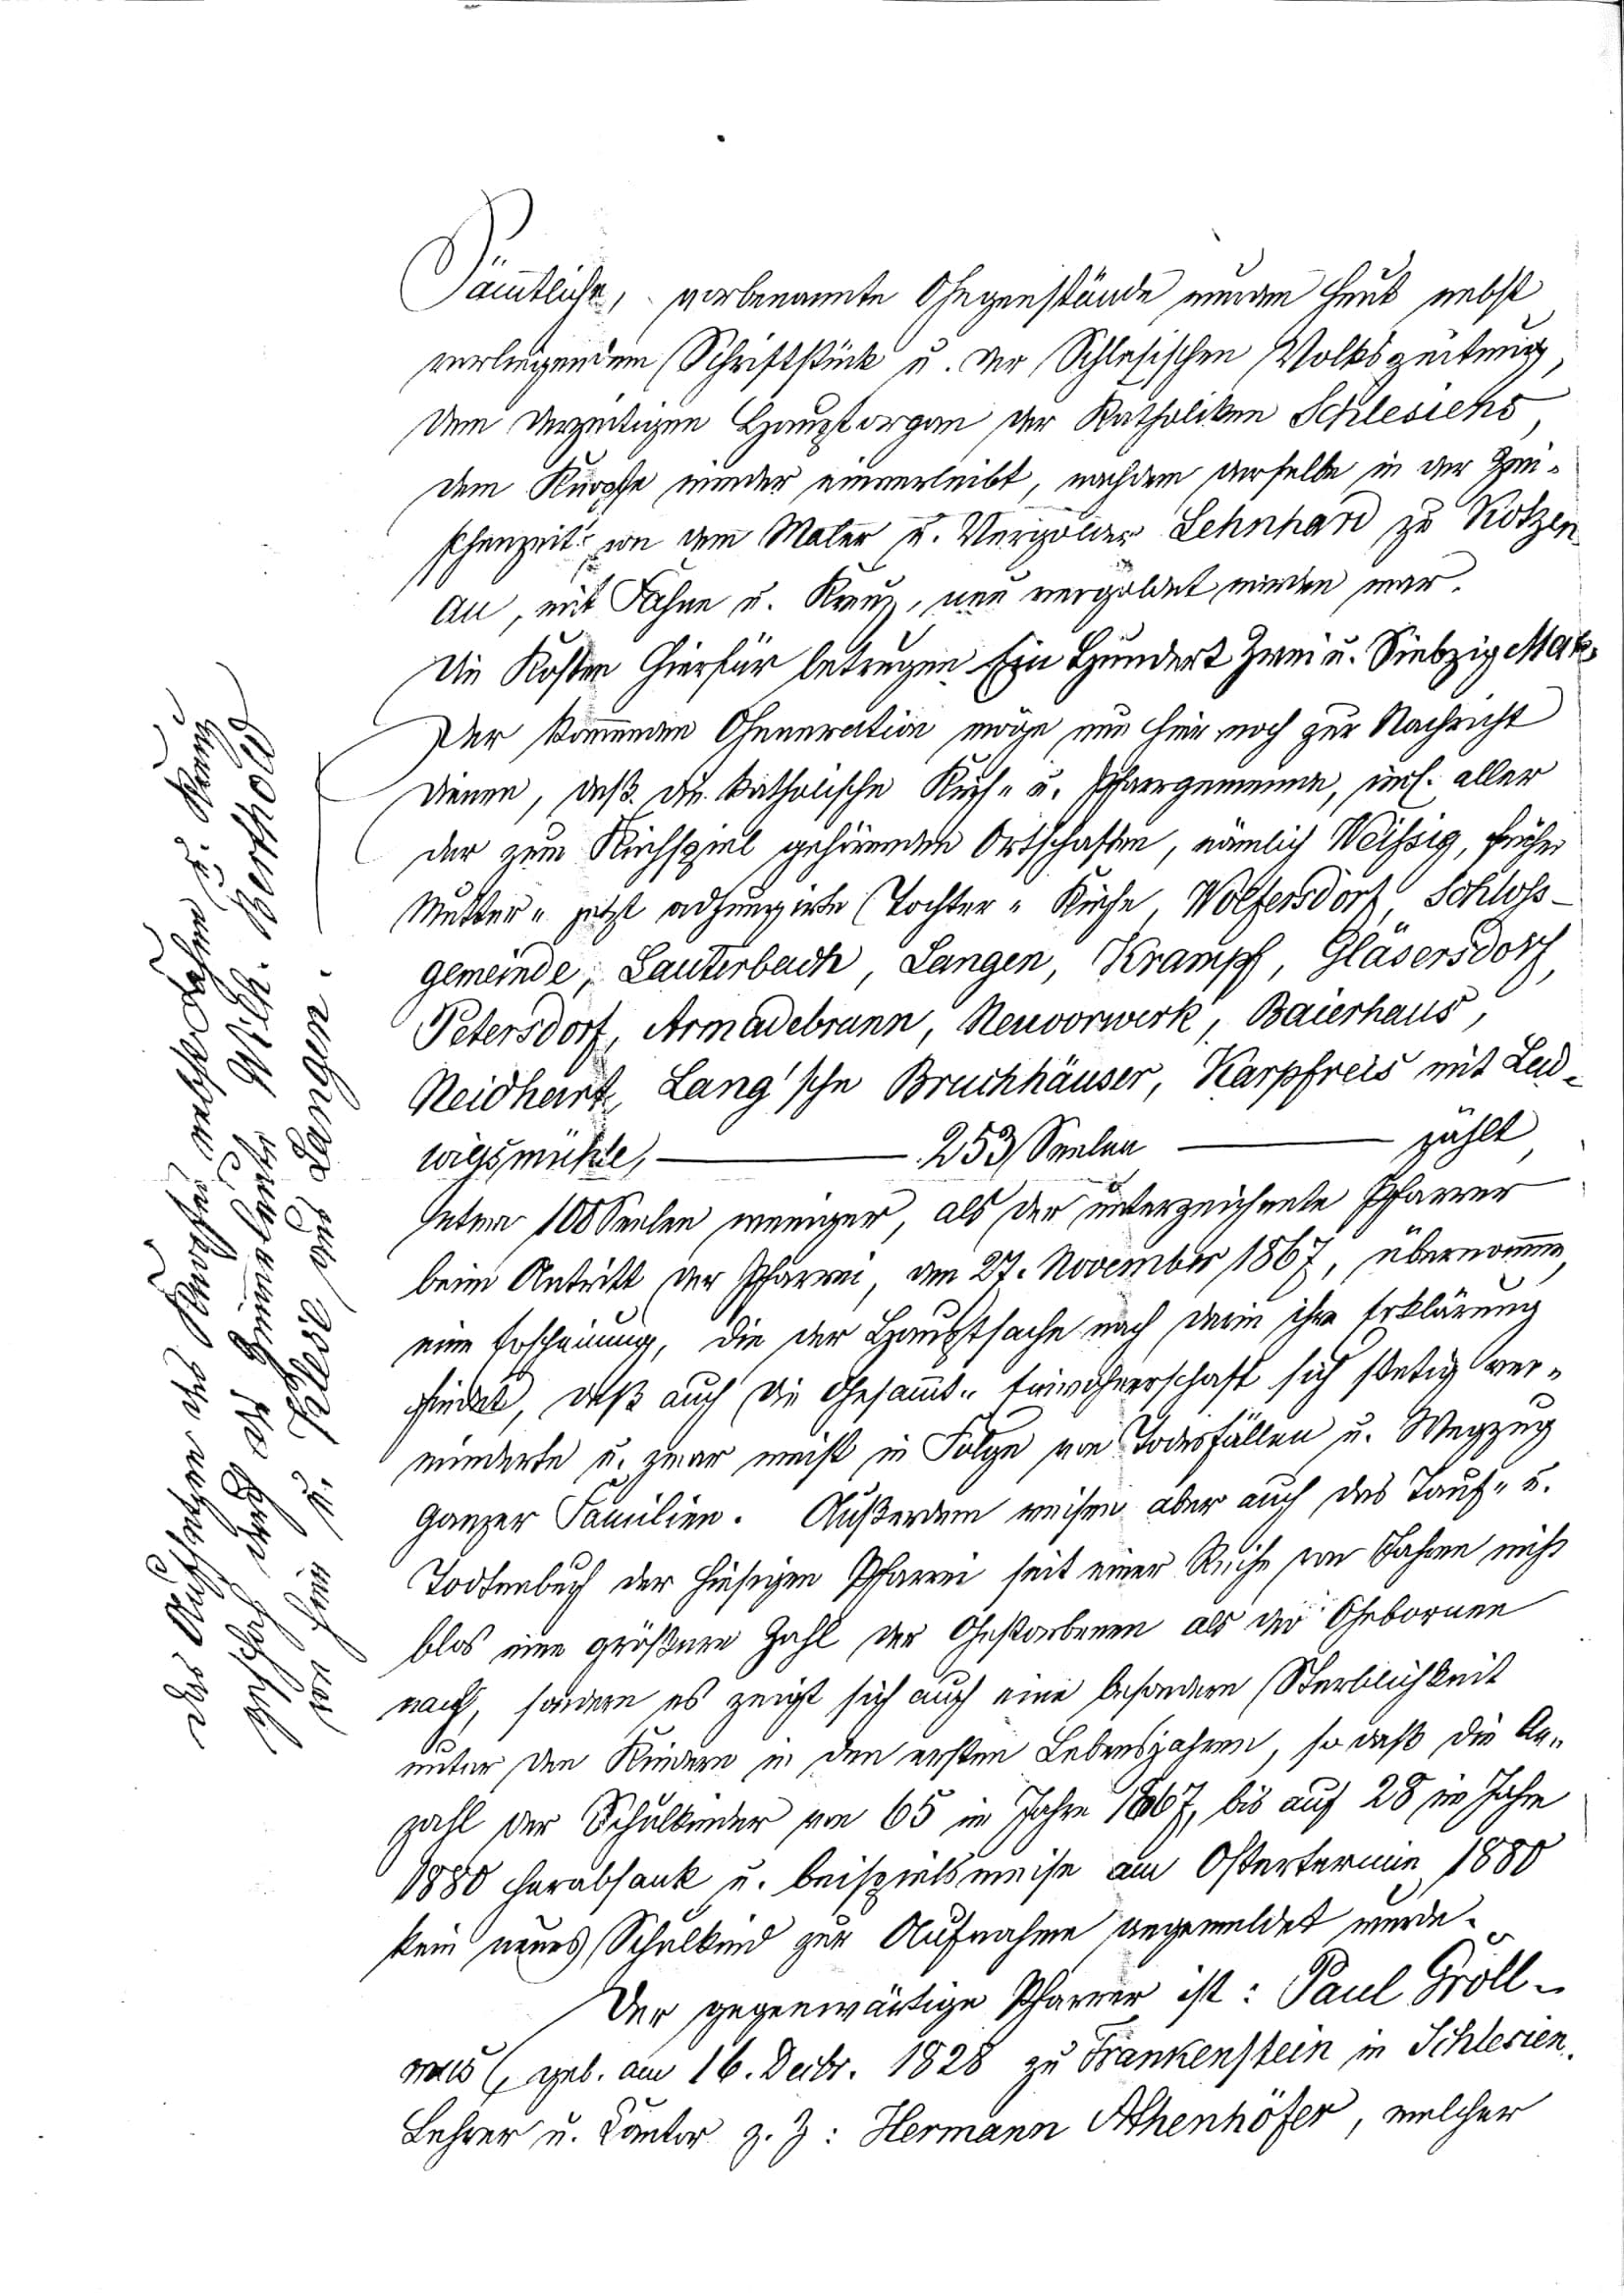 Sämtliche, vorbenannte Gegenstände wurden heut nebst
vorliegendem Schriftstück u. der Schlesischen Volkszeitung,
dem derzeitigen Hauptorgan der Katholiken Schlesiens,
dem Knopfe wieder einverleibt, nachdem derselbe in der Zwi-
schenzeit von dem Maler u. Vergolder Lehnhard zu Kotzen
au, mit Fahne u. Kreuz, neu vergoldet worden war.
Die Kosten hierfür betrugen Ein Hundert Zwei u. Siebzig Mark.
Der kommenden Generation möge nun hier noch zur Nachricht
dienen, daß die katholische Kirch- u. Pfarrgemeinde, incl. aller
der zum Kirchspiel gehörenden Ortschaften, nämlich Weißig, früher
Mutter- jetzt adjungirte Tochter-Kirche, Wolfersdorf, Schloss-
gemeinde, Lauterbach, Langen, Krampf, Gläsersdorf,
Petersdorf, Armadebrunn, Neuvorwerk, Baierhaus,
Neidhart, Lang'sche Bruchhäuser, Karpfreis mit Lud-
wigsmühle, 253 Seelen zählt,
etwa 100 Seelen weniger, als der unterzeichnete Pfarrer
beim Antritt der Pfarrei, am 27. November 1867, übernommen,
eine Erscheinung, die der Hauptsache nach darin ihre Erklärung
findet, daß auch die Gesammt-Einwohnerschaft sich stetig ver-
minderte u. zwar meist in Folge von Todesfällen u. Wegzug
ganzer Familien. Außerdem weisen aber auch das Tauf- u.
Todtenbuch der hiesigen Pfarrei seit einer Reihe von Jahren nicht
blos eine größere Zahl der Gestorbenen als der Gebornen
nach, sondern es zeigt sich auch eine besondere Sterblichkeit
unter den Kindern in den ersten Lebensjahren, so daß die An-
zahl der Schulkinder von 65 im Jahre 1867, bis auf 28 im Jahre
1880 herabsank u. beispielsweise am Ostertermin 1880
kein neues Schulkind zur Aufnahme angemeldet wurde.
Der gegenwärtige Pfarrer ist: Paul Gröll-
mus, geb. am 16. Decbr. 1828 zu Frankenstein in Schlesien.
Lehrer u. Cantor z. Z: Hermann Athenhöfer, welcher
Das Aufsetzen des Knopfes nebst Fahne u. Kreuz
geschah durch die Zimmerleute Wilh. Berthold
von hier u. Kliesch aus Langen.